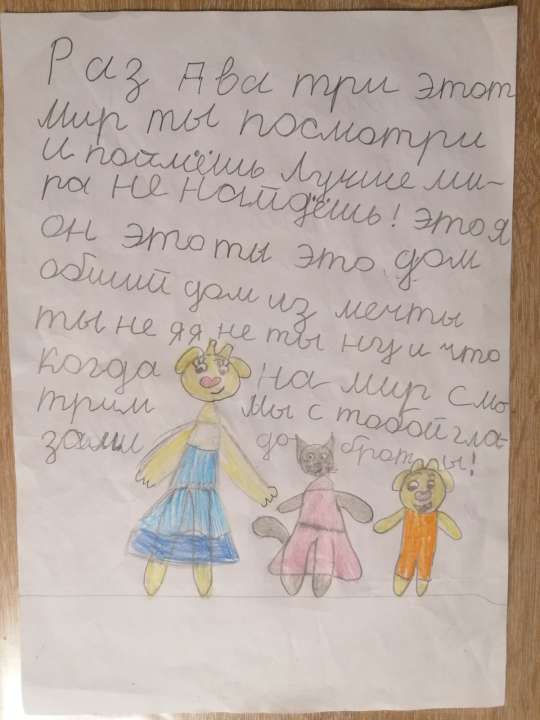 Раз два три этот
мир ты посмотри
и поймёшь Лучше ми-
ра не найдёшь! это я
он это ты это дом
обший дом из мечты
ты не я я не ты ну и что
когда на мир смо
трим мы с тобой гла-
зами доброты!